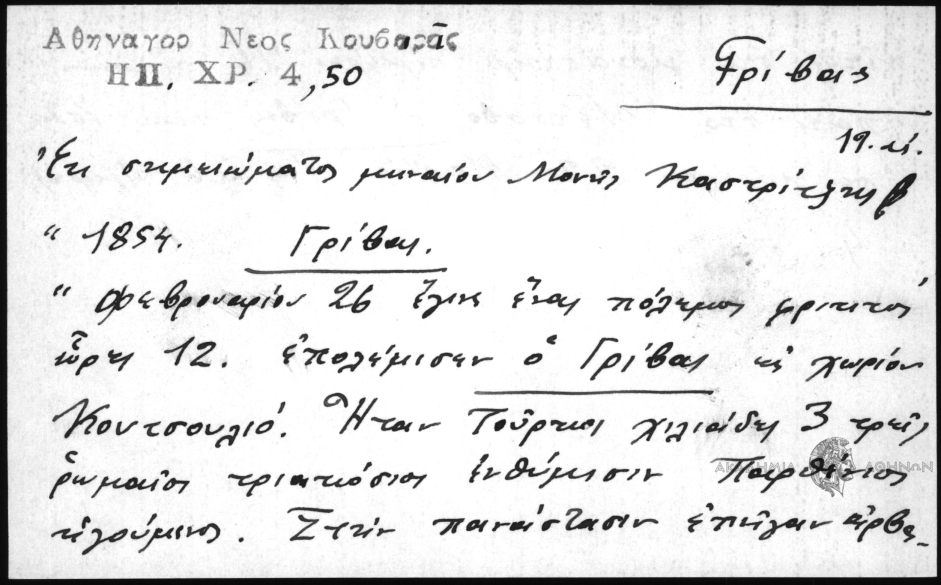 Αθηναγορ Νεος Κουβαρᾶς
ΗΠ. ΧΡ. 4,50
Γρίβας
19. αἰ.
Ἐκ σημειώματος μηναίου Μονῆς Καστρίτσης
" 1854. Γρίβας.
" Φεβρουαρίου 26 ἔγινε ἕνας πόλεμος φρικτός
ὥρες 12. ἐπολέμισεν ὁ Γρίβας εἰς χωρίον
Κουτσουλιό. Ἦταν Τοῦρκοι χιλιάδες 3 τρεῖς
ῥωμαῖοι τριακόσιοι ἐνθύμισιν Παρθένιος
ἡγούμενος. Στὴν πανάστασιν ἐπῆγαν
ΑΚΑΔΗΜΙΑ ΑΘΗΝΩΝ